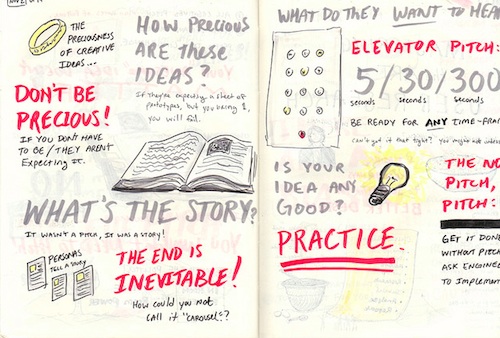 THE
PRECIOUSNESS
OF CREATIVE
IDEAS...
HOW PRECIOUS
ARE These
IDEAS?
If they're expecting a sheet of
prototypes, but you bring 1,
you will fail.
DON'T BE
PRECIOUS!
IF YOU DON'T HAVE
TO BE / THEY AREN'T
Expecting it.
WHAT'S THE STORY?
IT WASN'T A PITCH, IT WAS A STORY!
PERSONAS
TELL A STORY
THE END IS
INEVITABLE!
How could you not
CALL IT "CAROUSEL"?
WHAT DO THEY WANT TO HEA
ELEVATOR PITCH:
5/30/300
seconds seconds seconds
BE READY FOR ANY TIME-FRA
Can't get it that tight? you maybe not
IS YOUR
IDEA ANY
GOOD?
PRACTICE.
THE NO
PITCH,
PITCH:
GET IT DONE
WITHOUT PITCH
ASK ENGINEE
TO Implement